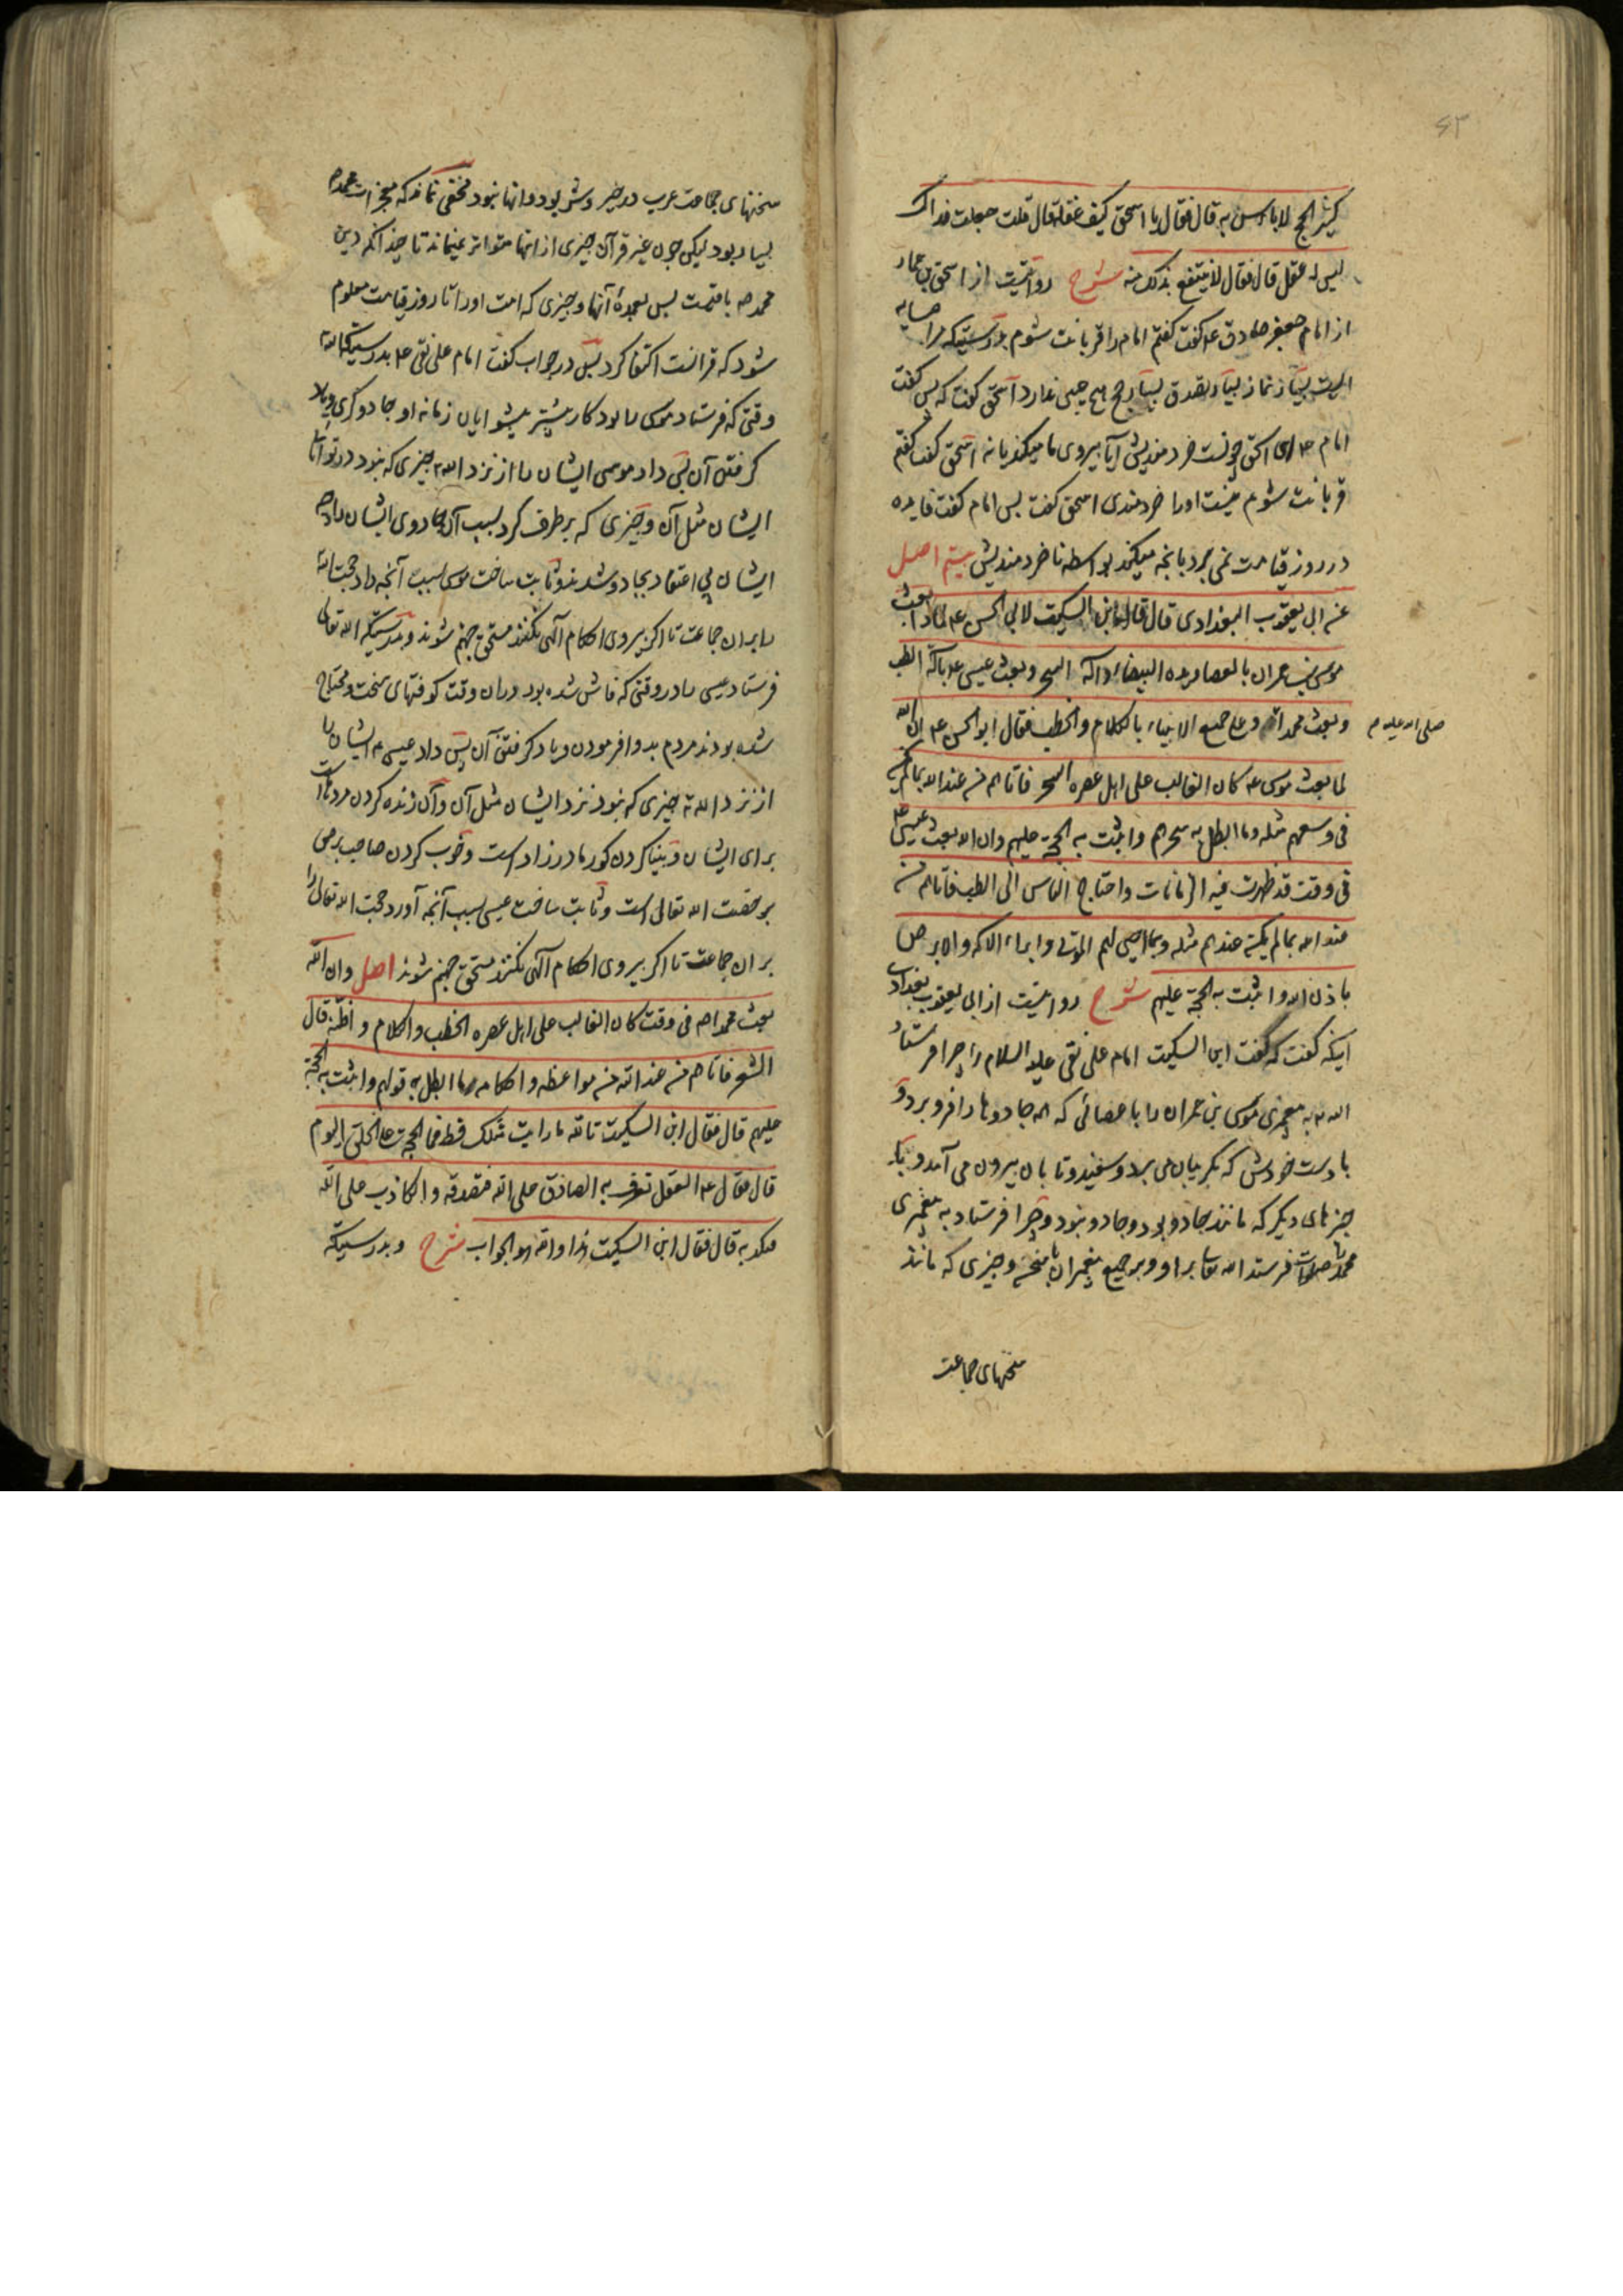 ۶۳
کثیر الحج لا باس به قال فقال یا اسحق کیف عقله قال قلت جعلت فداک
لیس له عقل قال فقال لا ینتفع بذلک منه شرح روایتیست از اسحق بن عمار
از امام جعفر صادق ع گفت گفتم امام را قربانت شوم بدرستیکه مرا همسایه
ایست بسیار نماز بسیار تصدق بسیار حج هیچ عیبی ندارد اسحق گفت که پس گفت
امام ع ای اسحق چونست خردمندیش آیا پیروی ما میکند یا نه اسحق گفت گفتم
قربانت شوم نیست اورا خردمندی اسحق گفت پس امام گفت فایده
در روز قیامت نمی برد بانچه میکند بواسطه ناخردمندیش بیستم اصل
عن ابی یعقوب البغدادی قال قال ابن السکیت لابی الحسن ع لماذا بعث
موسی بن عمران بالعصا و یده البیضاء و آلة السحر و بعث عیسی ع بآلة الطب
و بعث محمدا و علی جمیع الانبیاء بالکلام و الخطب فقال ابو الحسن ع ان الله
صلی الله علیه و
لما بعث موسی ع کان الغالب علی اهل عصره السحر فاتاهم من عند الله بما لم یکن
فی وسعهم مثله و ما ابطل به سحرهم و اثبت به الحجة علیهم و ان الله بعث عیسی ع
فی وقت قد ظهرت فیه الزمانات و احتاج الناس الی الطب فاتاهم من
عند الله بما لم یکن عندهم مثله و بما احیی لهم الموتی و ابراء الاکمه و الابرص
باذن الله و اثبت به الحجة علیهم شرح روایتیست از ابی یعقوب بغدادی
اینکه گفت که گفت ابن السکیت امام علی نقی علیه السلام را چرا فرستاد
الله به پیغمبری موسی بن عمران را با عصائی که همه جادوها را فرو برد و
با دست خودش که بگریبان می برد و سفید و تابان بیرون می آمد و با
چیزهای دیگر که مانند جادو بود و جادو نبود و چرا فرستاد به پیغمبری
محمد را صلوات فرستد الله تعالی بر او و بر جمیع پیغمبران با سخن و چیزی که مانند
سخنهای جماعت
سخنهای جماعت عرب در خیر و شر بود و انها نبود مخفی نماند که معجزات محمد ص
بسیار بود لیکن چون غیر قرآن چیزی از انها متواتر نمیماند تا چندانکه دین
محمد ص باقیست پس بعمده آنها و چیزی که امت اورا تا روز قیامت معلوم
شود که قرانست اکتفا کرد پس در جواب گفت امام علی نقی ع بدرستیکه الله
وقتی که فرستاد موسی را بود کار بیشتر پیشوایان زمانه او جادوگری و یاد
گرفتن آن پس داد موسی ایشان را از نزد الله چیزی که نبود در توانای
ایشان مثل آن و چیزی که برطرف کرد بسبب آن جادوی ایشان را و
ایشان بی اعتقاد بجادو شدند و ثابت ساخت موسی بسبب آنچه داد حجت الله
را بر ان جماعت تا اگر پیروی احکام آلهی نکنند مستحق جهنم شوند و بدرستیکه الله تعالی
فرستاد عیسی را در وقتی که فاش شده بود دران وقت کوفتهای سخت و محتاج
شده بودند مردم بدوا فرمودن و یاد گرفتن آن پس داد عیسی ایشان را
از نزد الله چیزی که نبود نزد ایشان مثل آن و آن زنده کردن مردهاست
برای ایشان و بینا کردن کور مادرزاد است و خوب کردن صاحب برص
برخصت الله تعالی است و ثابت ساخت عیسی بسبب آنچه آورد حجت الله تعالی را
بر ان جماعت تا اگر پیروی احکام آلهی نکنند مستحق جهنم شوند اصل و ان الله
بعث محمدا ص فی وقت کان الغالب علی اهل عصره الخطب و الکلام و اظنه قال
الشعر فاتاهم من عند الله من مواعظه و احکامه ما ابطل به قولهم و اثبت به الحجة
علیهم قال فقال ابن السکیت تالله ما رایت مثلک قط فما الحجة علی الخلق الیوم
قال فقال ع العقل تعرف به الصادق علی الله فتصدقه و الکاذب علی الله
فتکذبه قال فقال ابن السکیت هذا والله هو الجواب شرح و بدرستیکه